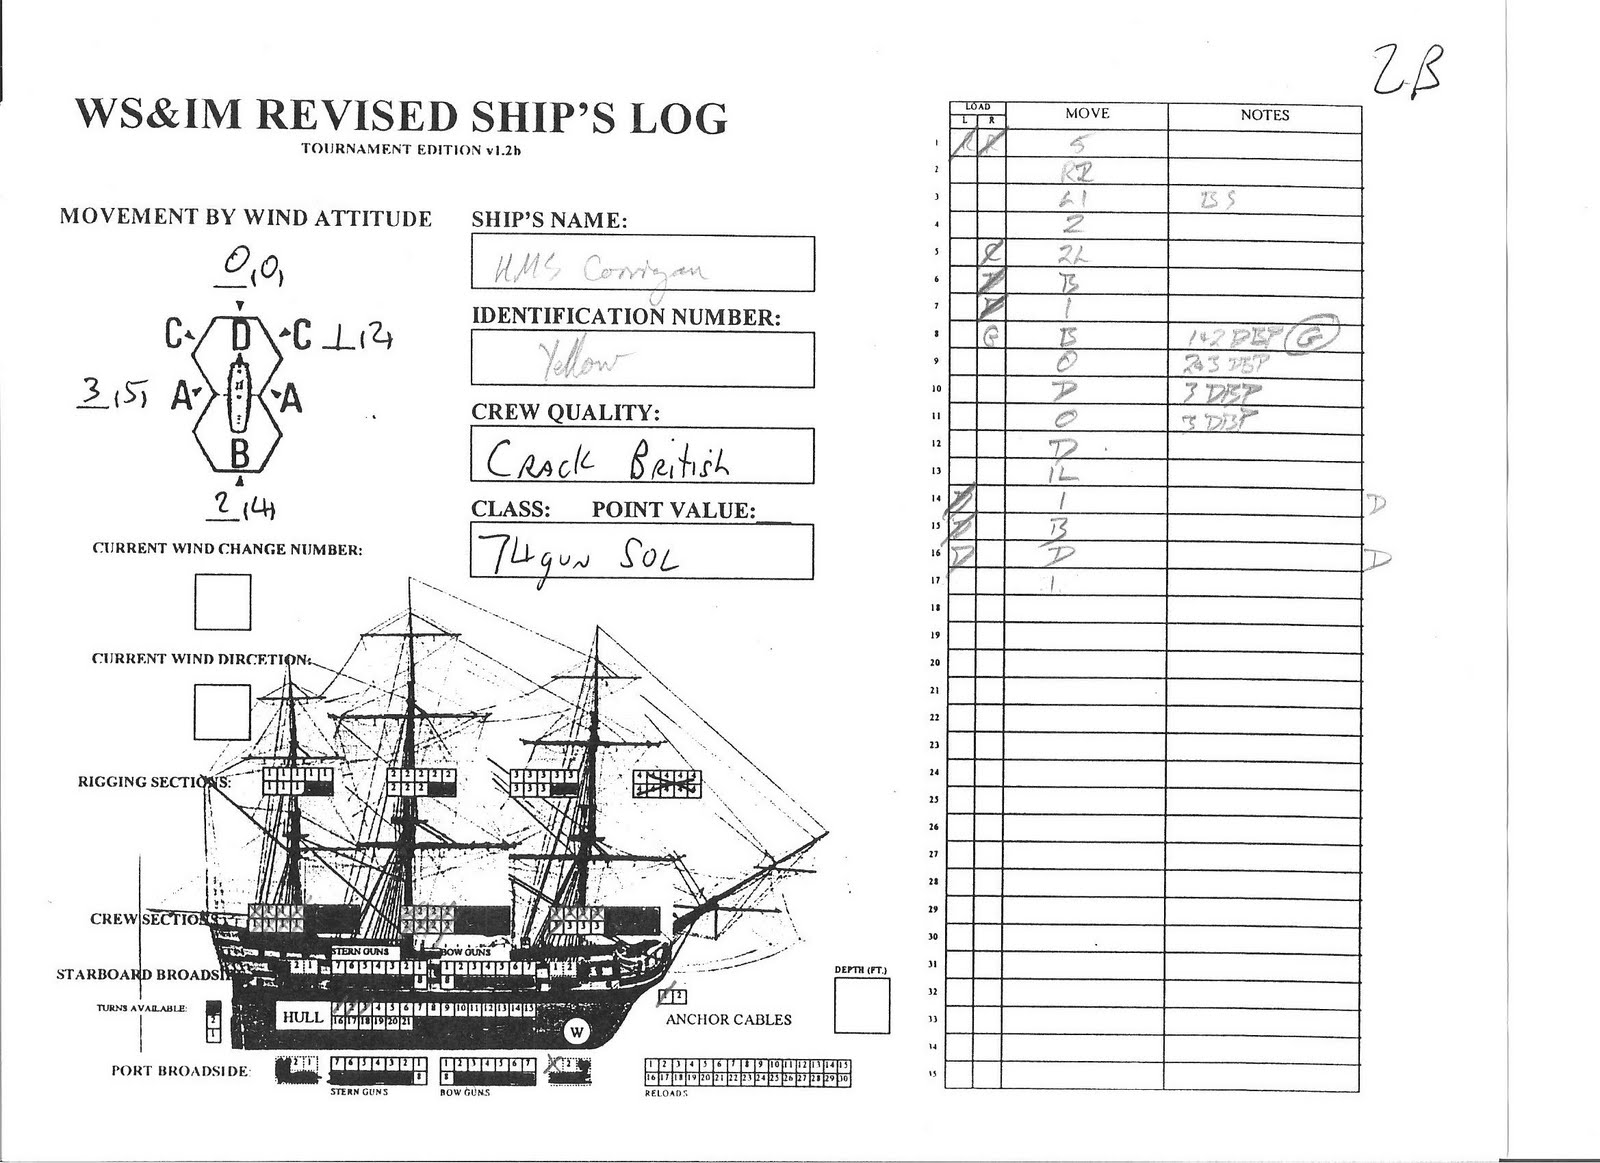 2B
WS&IM REVISED SHIP'S LOG
TOURNAMENT EDITION v1.2b
MOVEMENT BY WIND ATTITUDE
0,0,
C D C 1(2)
3(5) A A
B
2(4)
CURRENT WIND CHANGE NUMBER:
CURRENT WIND DIRCETION:
SHIP'S NAME:
HMS Corrigan
IDENTIFICATION NUMBER:
Yellow
CREW QUALITY:
Crack British
CLASS: POINT VALUE:
74 gun SOL
RIGGING SECTIONS:
1 1 1 1 1 2 2 2 2 2 3 3 3 3 3 4 4 4 4
1 1 1 2 2 2 3 3 3
CREW SECTIONS
STERN GUNS BOW GUNS
STARBOARD BROADSI
2 1 7 6 5 4 3 2 1 1 2 3 4 5 6 7 1 2
8 8
TURNS AVAILABLE:
2
1
HULL
1 2 3 4 5 6 7 8 9 10 11 12 13 14 15
16 17 18 19 20 21
W
1 2
ANCHOR CABLES
DEPTH (FT.)
PORT BROADSIDE:
2 1 7 6 5 4 3 2 1 1 2 3 4 5 6 7 2
8 8
STERN GUNS BOW GUNS
1 2 3 4 5 6 7 8 9 10 11 12 13 14 15
16 17 18 19 20 21 22 23 24 25 26 27 28 29 30
RELOADS
LOAD MOVE NOTES
L R
1 R R 5
2 R2
3 L1 BS
4 2
5 2L
6 B
7 1
8 G B 1+2 DBP G
9 0 2+3 DBP
10 D 3 DBP
11 0 3 DBP
12 D
13 1L
14 D 1 D
15 D B
16 D D D
17 1
18
19
20
21
22
23
24
25
26
27
28
29
30
31
32
33
34
35